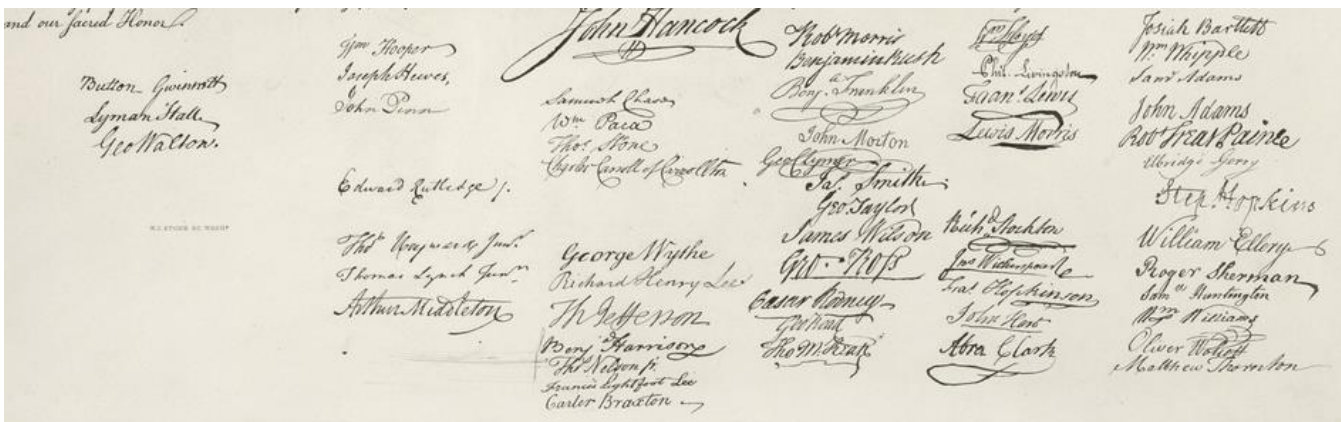 and our sacred Honor.
Button Gwinnett
Lyman Hall
Geo Walton.
W.J. STONE SC. WASHN
Wm Hooper
Joseph Hewes,
John Penn
Edward Rutledge /.
Thos Heyward Junr.
Thomas Lynch Junr.
Arthur Middleton
John Hancock
Samuel Chase
Wm. Paca
Thos. Stone
Charles Carroll of Carrollton
George Wythe
Richard Henry Lee
Th Jefferson
Benj Harrison
Thos Nelson jr.
Francis Lightfoot Lee
Carter Braxton
Robt Morris
Benjamin Rush
Benja. Franklin
John Morton
Geo Clymer
Jas. Smith
Geo. Taylor
James Wilson
Geo. Ross
Caesar Rodney
Geo Read
Tho M:Kean
Wm Floyd
Phil. Livingston
Frans. Lewis
Lewis Morris
Richd. Stockton
Jno Witherspoon
Fras. Hopkinson
John Hart
Abra Clark
Josiah Bartlett
Wm. Whipple
Saml Adams
John Adams
Robt Treat Paine
Elbridge Gerry
Step. Hopkins
William Ellery
Roger Sherman
Saml Huntington
Wm Williams
Oliver Wolcott
Matthew Thornton